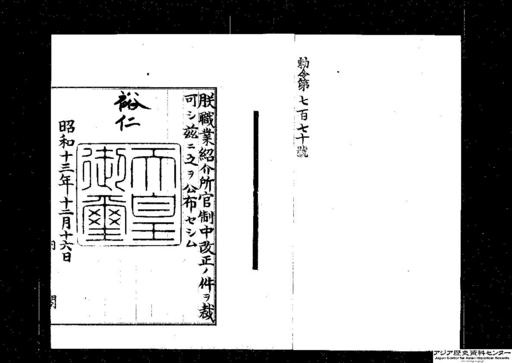 勅令第七百七十號
朕職業紹介所官制中改正ノ件ヲ裁
可シ茲ニ之ヲ公布セシム
裕仁
天皇
御璽
昭和十三年十二月十六日
内閣
アジア歴史資料センター
Japan Center for Asian Historical Records